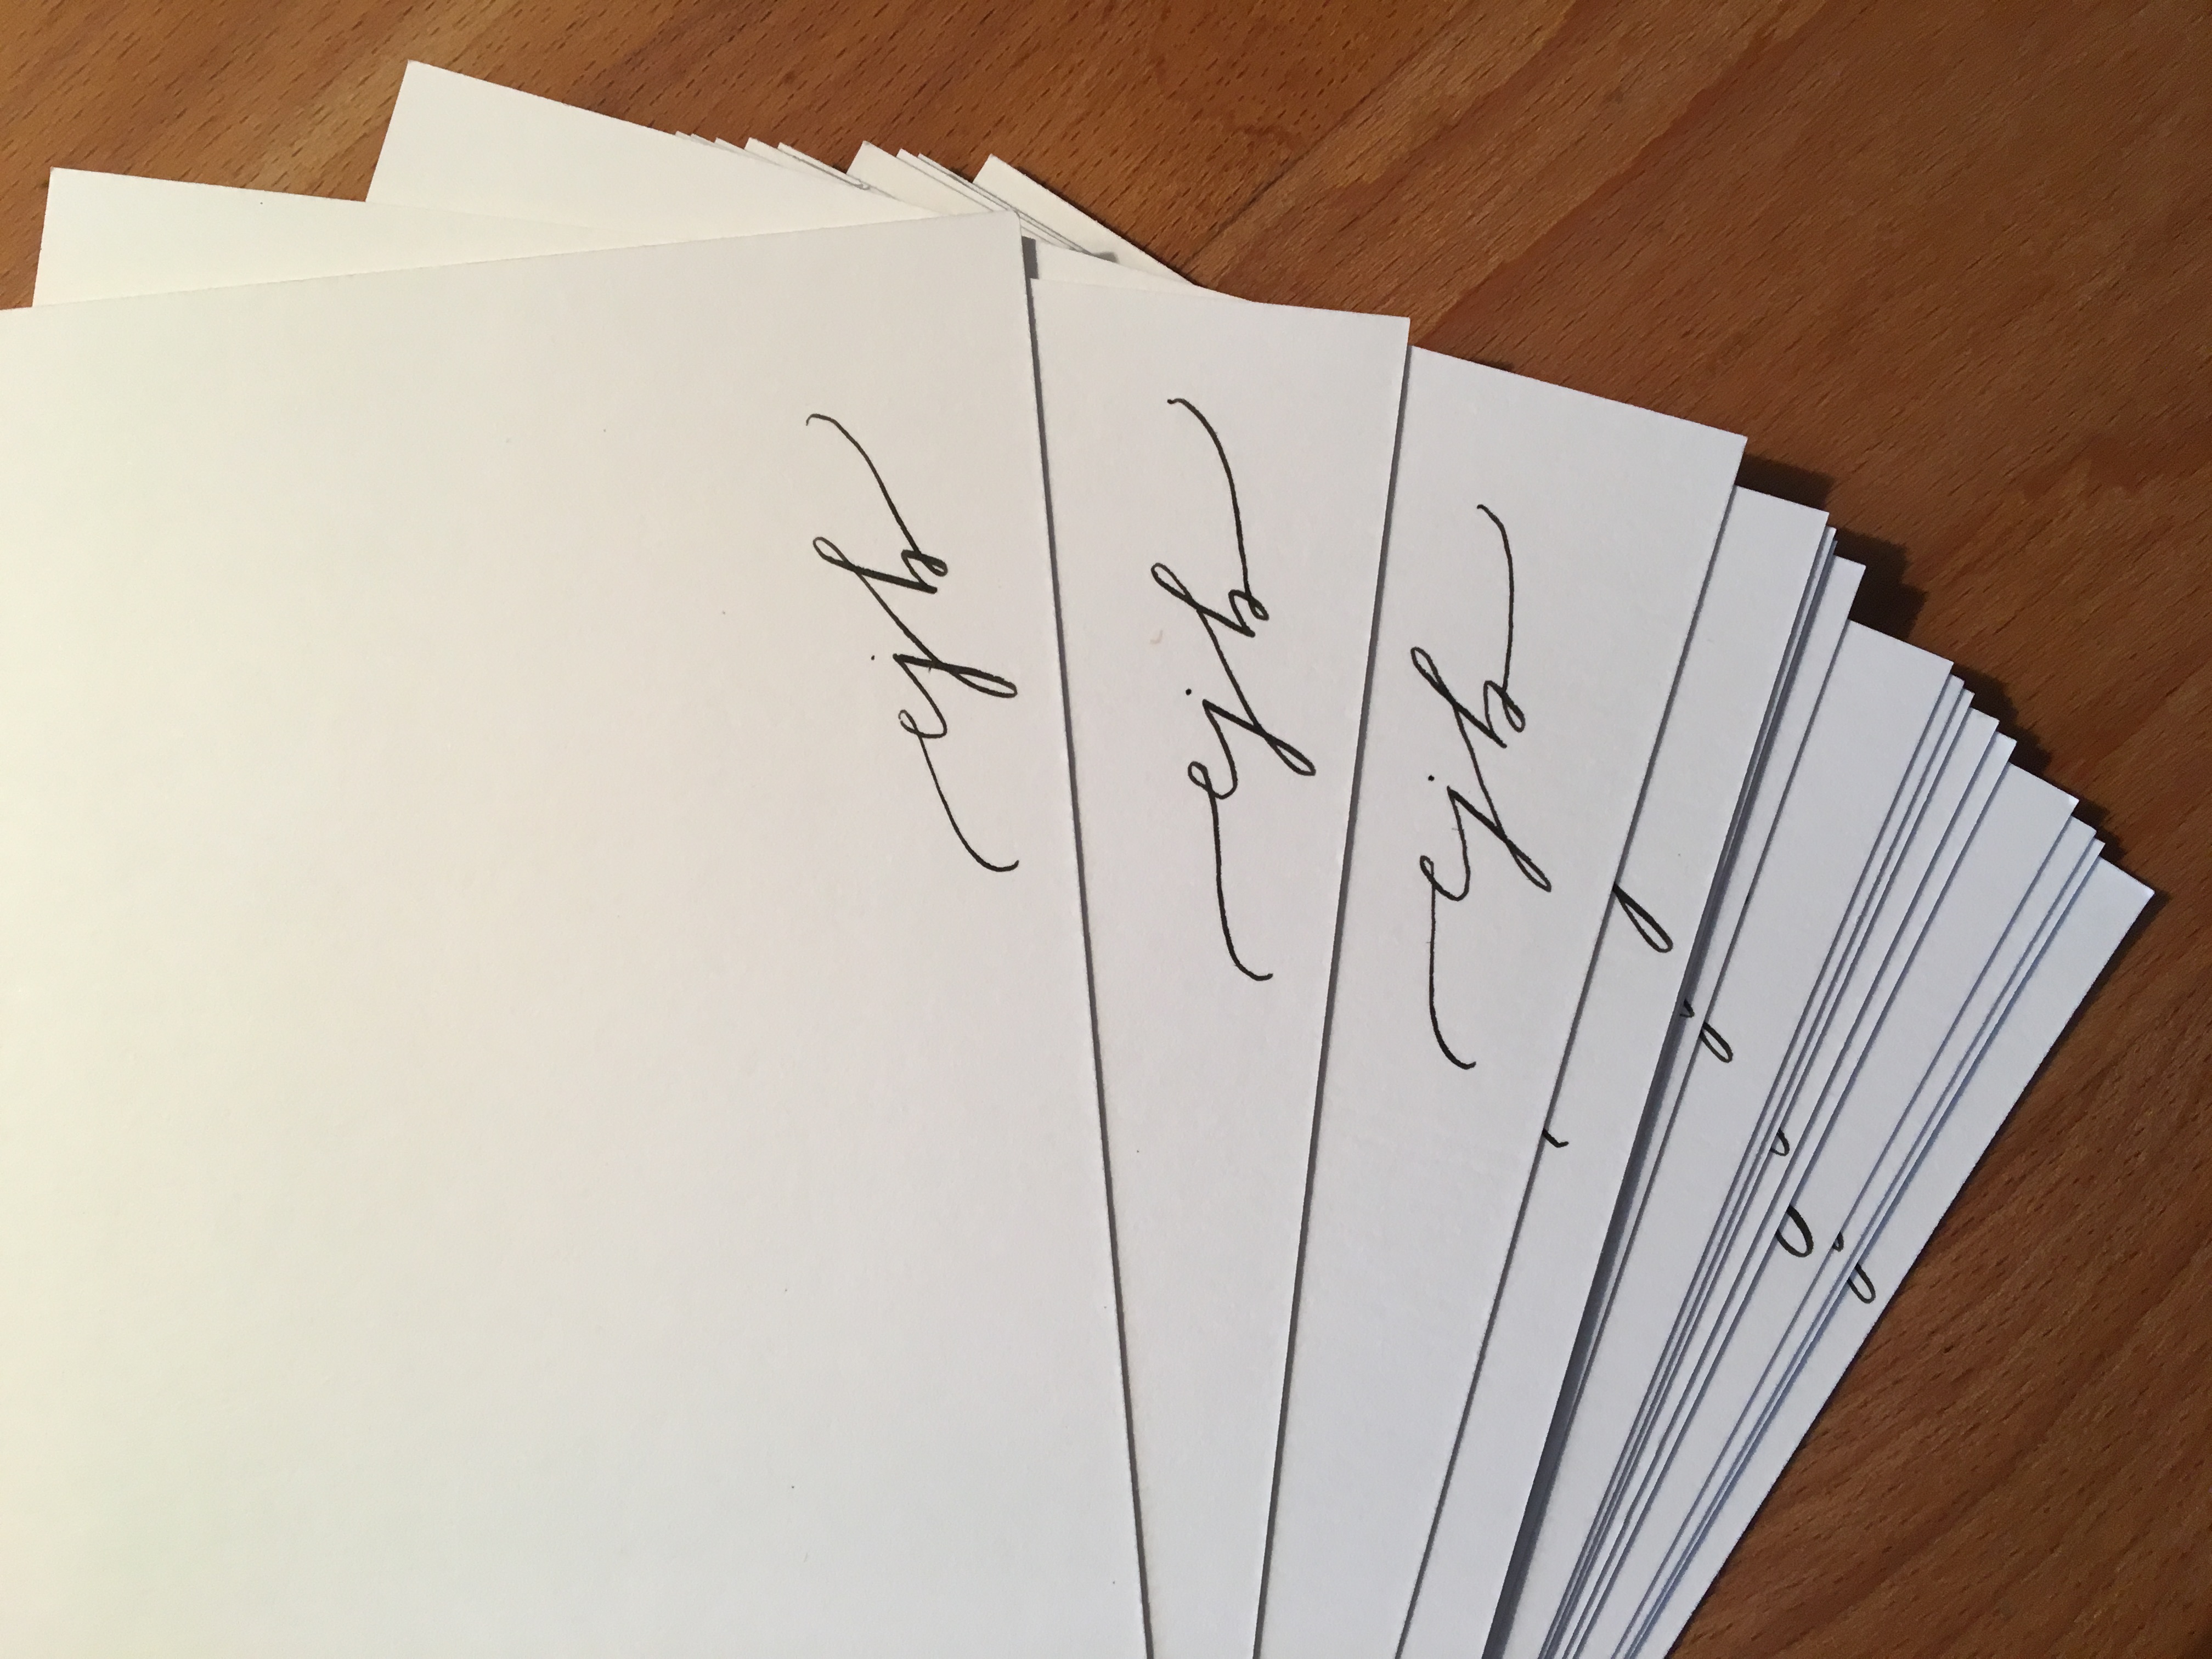 ejb
ejb
ejb